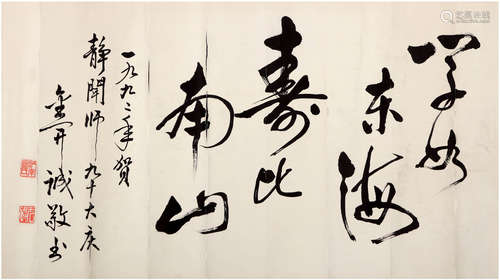 学如
东海
寿比
南山
一九九二年贺
静闻师九十大庆
金开诚敬书